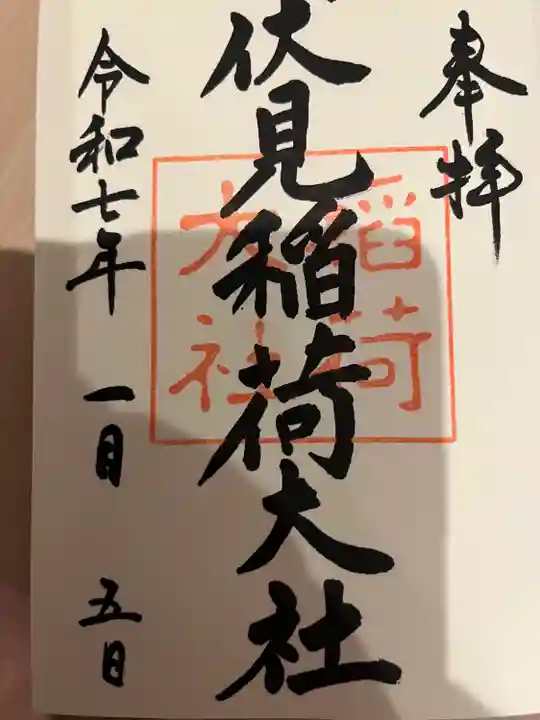 奉拝
伏見稲荷大社
稲荷
大社
令和七年 一月 五日